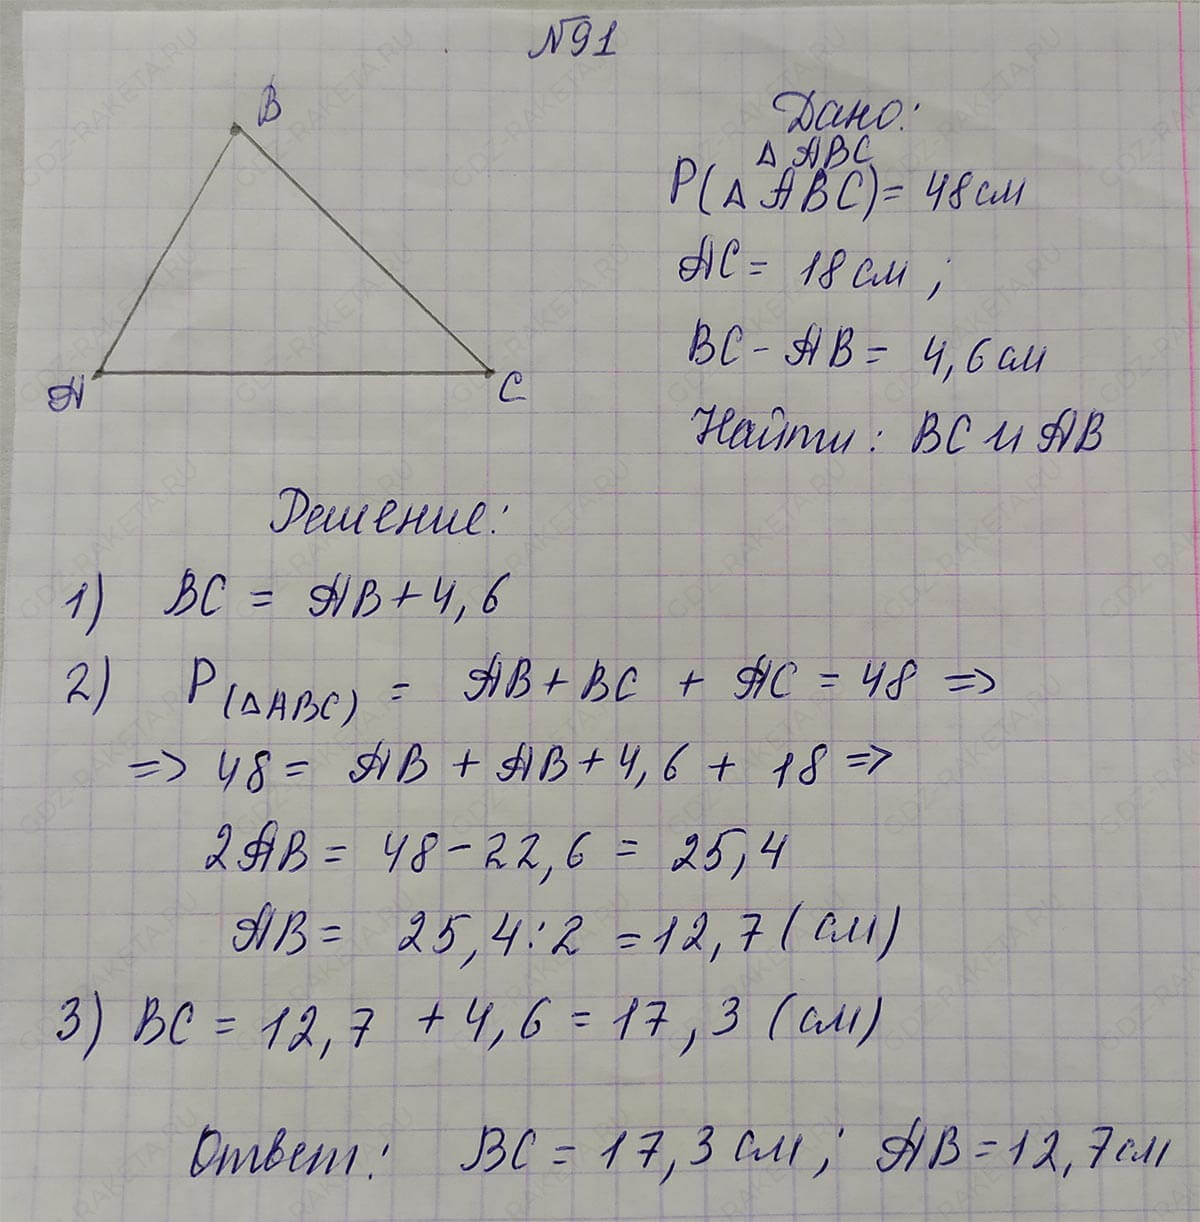 №91
B
A
C
Дано:
△ ABC
P(△ ABC) = 48 см
AC = 18 см ;
BC - AB = 4,6 см
Найти: BC и AB
Решение:
1) BC = AB + 4,6
2) P(△ABC) = AB + BC + AC = 48 =>
=> 48 = AB + AB + 4,6 + 18 =>
2AB = 48 - 22,6 = 25,4
AB = 25,4 : 2 = 12,7 (см)
3) BC = 12,7 + 4,6 = 17,3 (см)
Ответ: BC = 17,3 см ; AB = 12,7 см
GDZ-RAKETA.RU